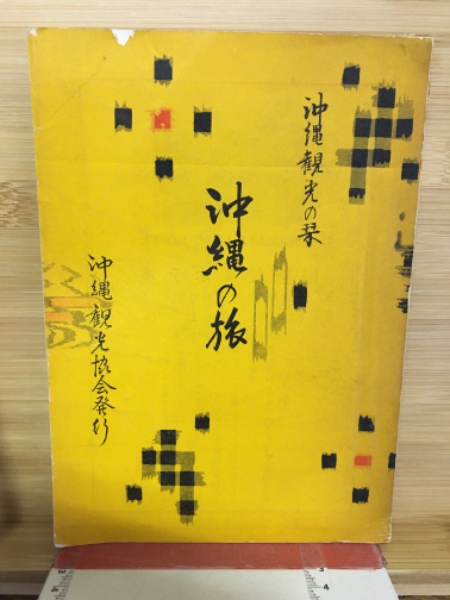 沖縄観光の栞
沖縄の旅
沖縄観光協会発行